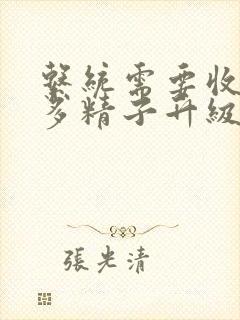 繫統需要收
多精子升級
張光清